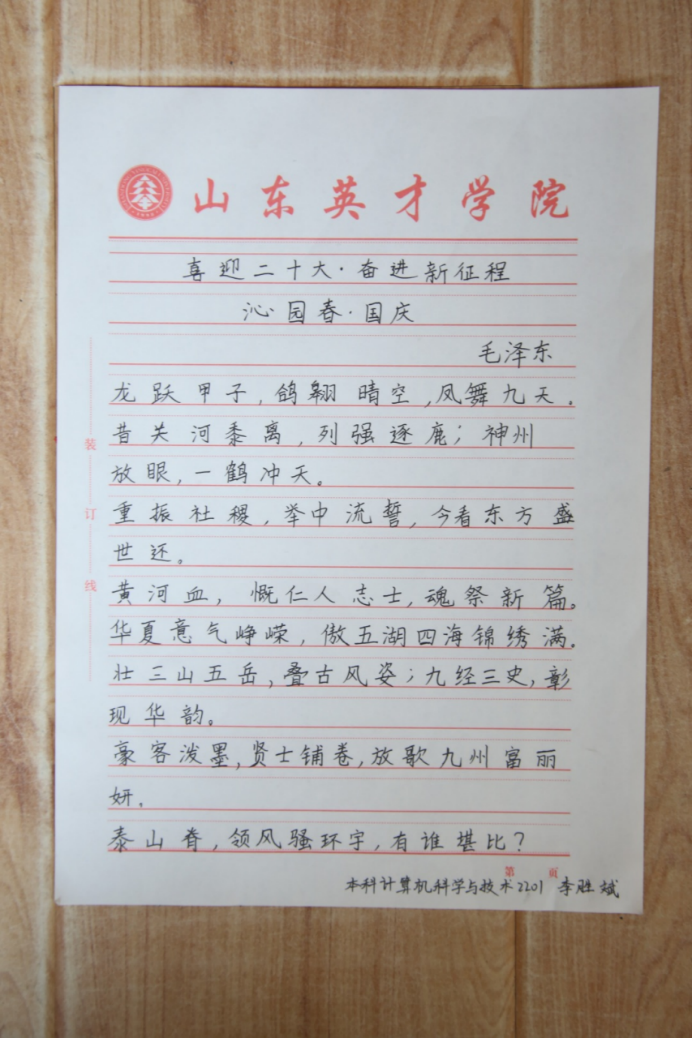 山东英才学院
喜迎二十大·奋进新征程
沁园春·国庆
毛泽东
龙跃甲子,鸽翱晴空,凤舞九天。
昔关河黍离,列强逐鹿;神州
放眼,一鹤冲天。
重振社稷,举中流誓,今看东方盛
世还。
黄河血,慨仁人志士,魂祭新篇。
华夏意气峥嵘,傲五湖四海锦绣满。
壮三山五岳,叠古风姿;九经三史,彰
现华韵。
豪客泼墨,贤士铺卷,放歌九州富丽
妍。
泰山脊,领风骚环宇,有谁堪比?
装
订
线
第 页
本科计算机科学与技术2201 李胜斌